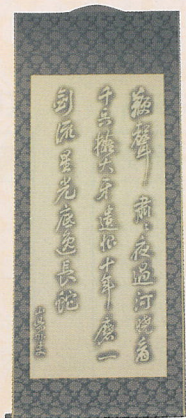 鞭聲肅々夜過河曉見
千兵擁大牙遺恨十年磨一
劍流星光底逸長蛇